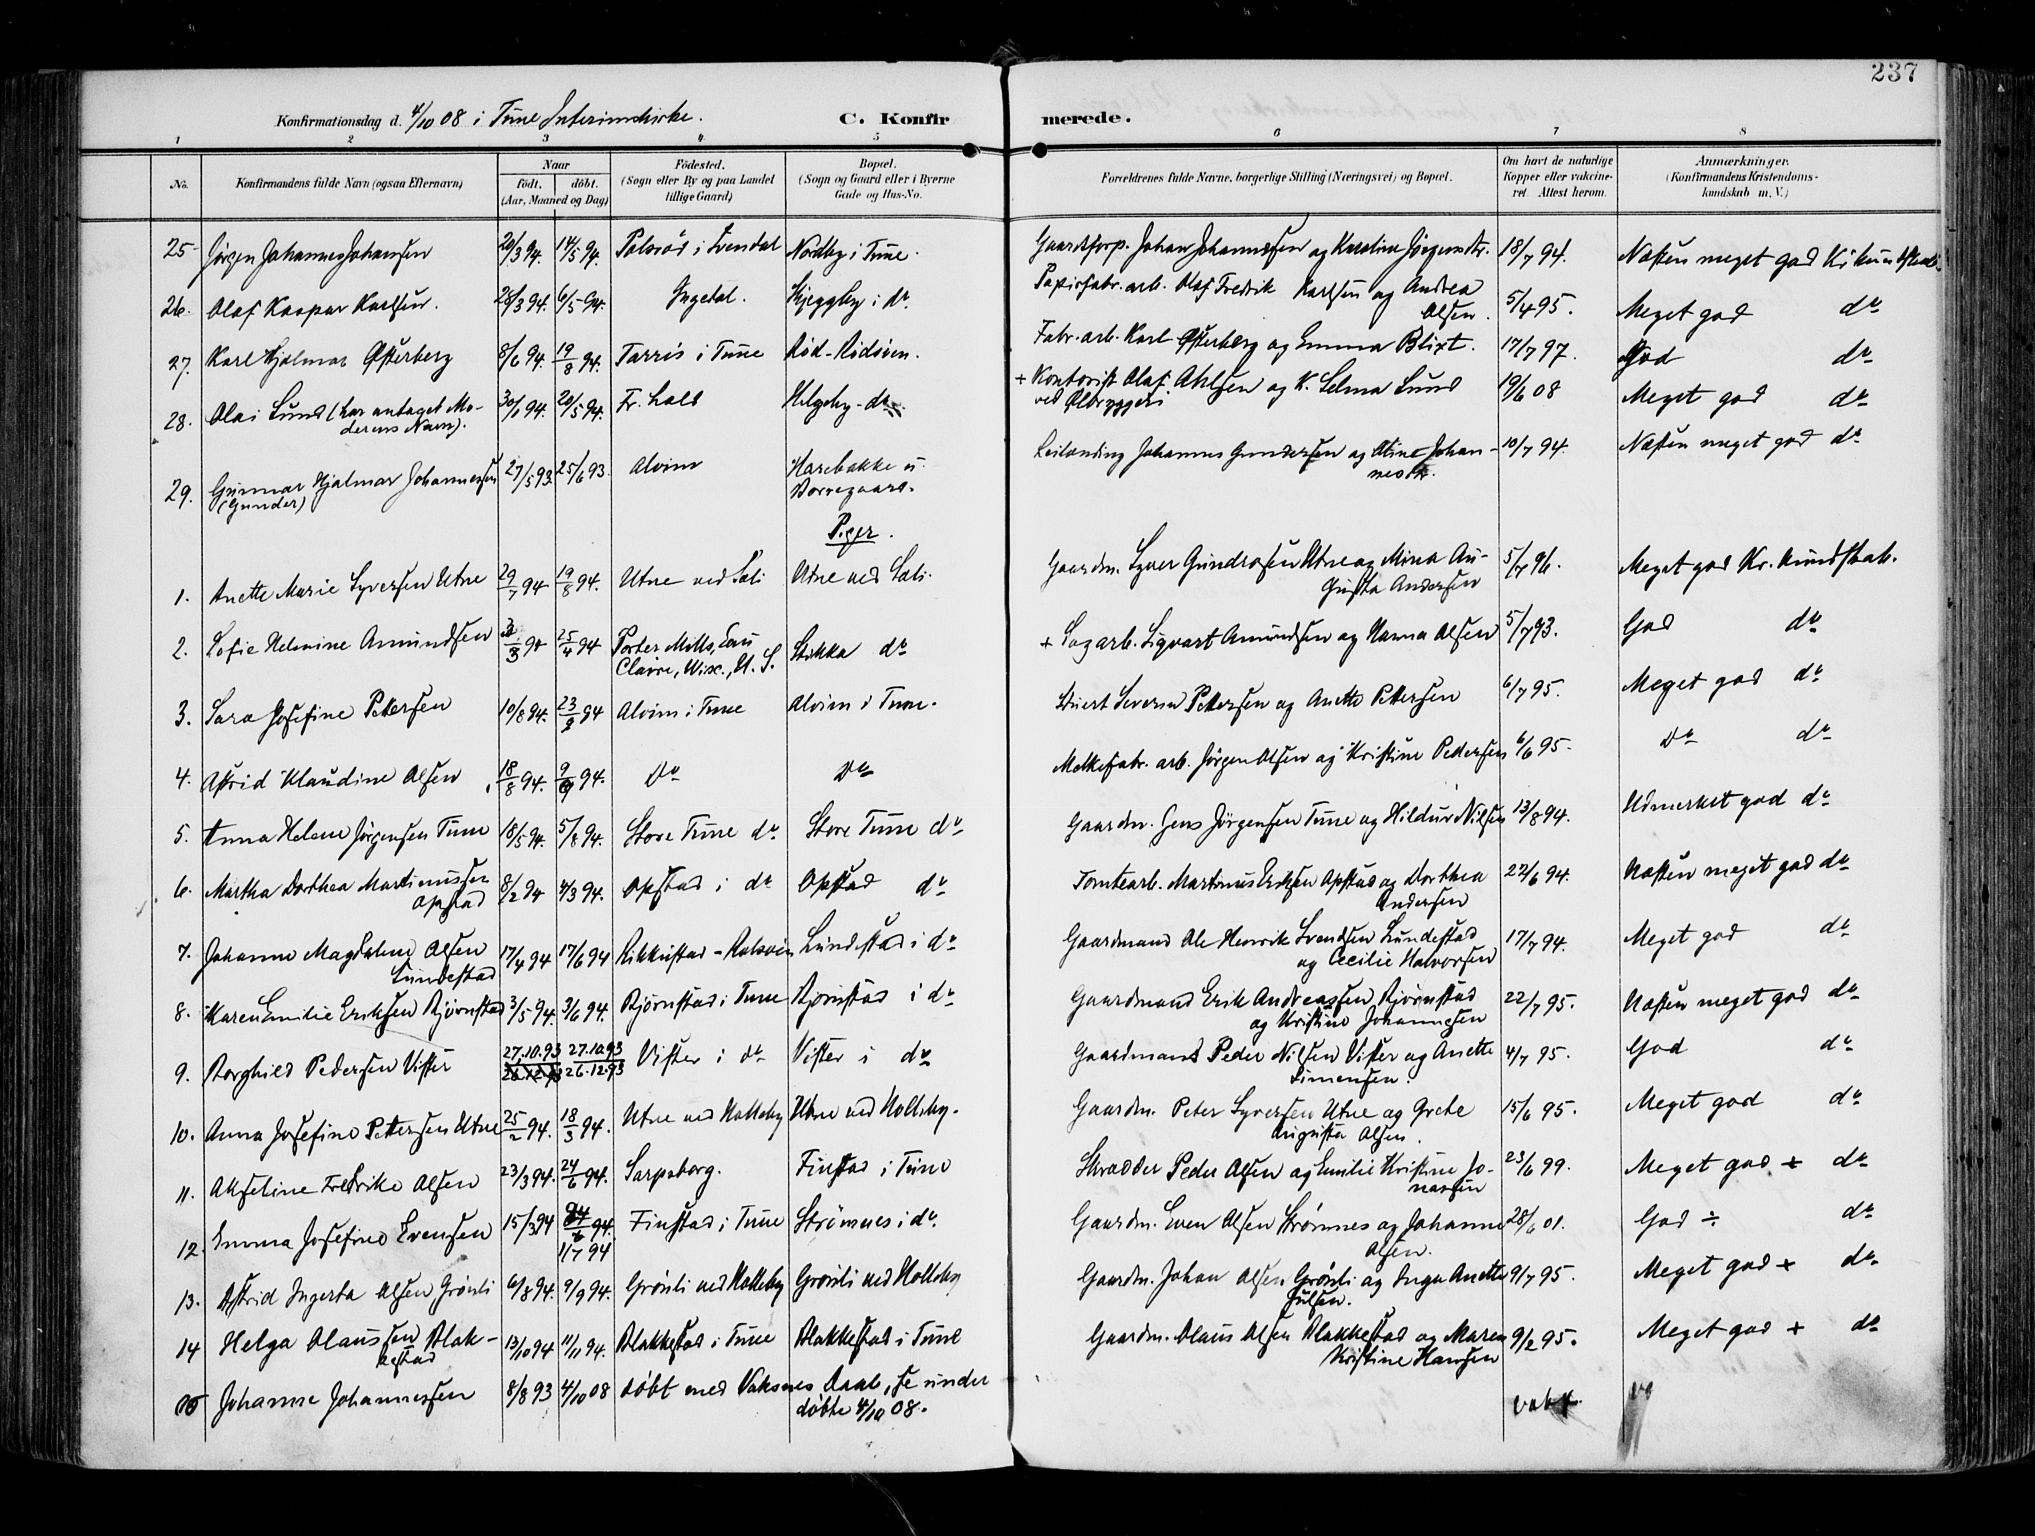 237
Konfirmationsdag d. 4/10 08 i Tune Interimskirke. C. Konfirmerede.
1 2 3 4 5 6 7 8
No. Konfirmandens fulde Navn (ogsaa Efternavn) Naar født. døbt. (Aar, Maaned og Dag) Fødested. (Sogn eller By og paa Landet tillige Gaard) Bopæl. (Sogn og Gaard eller i Byerne Gade og Hus-No. Forældrenes fulde Navne, borgerlige Stilling (Næringsvei) og Bopæl. Om havt de naturlige Kopper eller vakcineret. Attest herom. Anmærkninger. (Konfirmandens Kristendomskundskab m. V.)
25 Jørgen Johannes Johansen 20/3 94. 14/5 94. i Nordby i Tune. Gaardforp. Johan Johannessen og Karoline Jørgensdtr. 18/7 94. Næsten meget god
26. Olaf Kaspar Karlsen. 28/3 94. 6/5 94. Ingedal. i do Papirfabr. arb. Olaf Fredrik Karlsen og Andrea Olsen. 5/4 95. Meget god do
27. Karl Hjalmar Østerberg 8/6 94. 19/8 94. Tarris i Tune Rød - Fabr. arb. Karl Østerberg og Emma Blixt. 17/7 97. God do
28. Olai Lund (har antaget Moderens Navn). 30/1 94. 20/5 94. Fr. hald Helgeby - do + Kontorist Olaf Ahlsen og K. Selma Lund ved Ølbryggeri 19/6 08 Meget god do
29. Gunnar Hjalmar Johannessen (Gunder) 27/5 93. 25/6 93. Alvim Harebakke u. Borregaard. Leilending Johannes Gundersen og Oline Johannesdtr. 10/7 94. Næsten meget god do
Piger.
1. Anette Marie Syversen Utne 29/7 94 19/8 94. Utne ved Soli Utne ved Soli. Gaardm. Syver Gundersen Utne og Mina Augusta Andersen 5/7 96. Meget god Kr. kundskab.
2. Sofie Helmine Amundsen 3/3 94 25/4 94 Porter Mills, Eau Claire, Wisc., U. S. Stikka do + Sagarb. Sigvart Amundsen og Hanna Olsen 5/7 93. God do
3. Sara Josefine Pettersen 10/8 94. 23/9 94 Alvim i Tune Alvim i Tune. Severin Pettersen og Anette Pettersen 6/7 95. Meget god do
4. Astrid Klaudine Olsen 18/8 94. 9/9 94. Do Do Melkefabr. arb. Jørgen Olsen og Kristine Pedersen 6/6 95. Do do
5. Anna Helene Jørgensen Tune 18/5 94. 5/8 94. Store Tune do Store Tune do Gaardm. Jens Jørgensen Tune og Hildur Nilsen 13/8 94. Udmerket god do
6. Martha Dorthea Martinussen Opstad 8/2 94 4/3 94. Opstad i do Opstad do Tomtearb. Martinus Eriksen Opstad og Dorthea Andersen 22/6 94. Næsten meget god do
7. Johanne Magdalene Olsen Lundestad 17/4 94 17/6 94 Rikkestad - Rolvsøy Lundestad i do Gaardmand Ole Henrik Svendsen Lundestad og Cecilie Halvorsen 17/7 94. Meget god do
8. Karen Emilie Eriksen Bjørnstad 3/5 94. 3/6 94. Bjørnstad i Tune Bjørnstad i do Gaardmand Erik Andreassen Bjørnstad og Kristine Johannesen 22/7 95. Næsten meget god do
9. Borghild Pedersen Vister 27.10.93 26.12.93 27.10.93 26.12.93 Vister i do Vister i do Gaardmand Peder Nilsen Vister og Anette Simensen. 4/7 95. God do
10. Anna Josefine Pettersen Utne 25/2 94. 18/3 94. Utne ved Holleby Utne ved Holleby. Gaardm. Peter Syversen Utne og Grete Augusta Olsen. 15/6 95. Meget god do
11. Akseline Fredrike Olsen 23/3 94. 24/6 94. Sarpsborg. Finstad i Tune Skrædder Peder Olsen og Emilie Kristine Jonassen 23/6 99. Meget god + do
12. Emma Josefine Evensen 15/3 94 24/6 94. 1/7 94 Finstad i Tune Strømnes i do. Gaardm. Even Olsen Strømnes og Johanne Olsen. 28/6 01. God ÷ do
13. Astrid Ingerta Olsen Grønli 6/8 94. 9/9 94. Grønli ved Holleby Grønli ved Holleby Gaardm. Johan Olsen Grønli og Inga Anette Julsen. 9/7 95. Meget god + do
14 Helga Olaussen Blakkestad 13/10 94 11/11 94. Blakkestad i Tune Blakkestad i Tune Gaardm. Olaus Olsen Blakkestad og Maren Kristine Hansen 9/2 95. Meget god + do
15 Johanne Johannessen 8/8 93 4/10 08 døbt med Voksnes Daab, se under døbte 4/10 08.